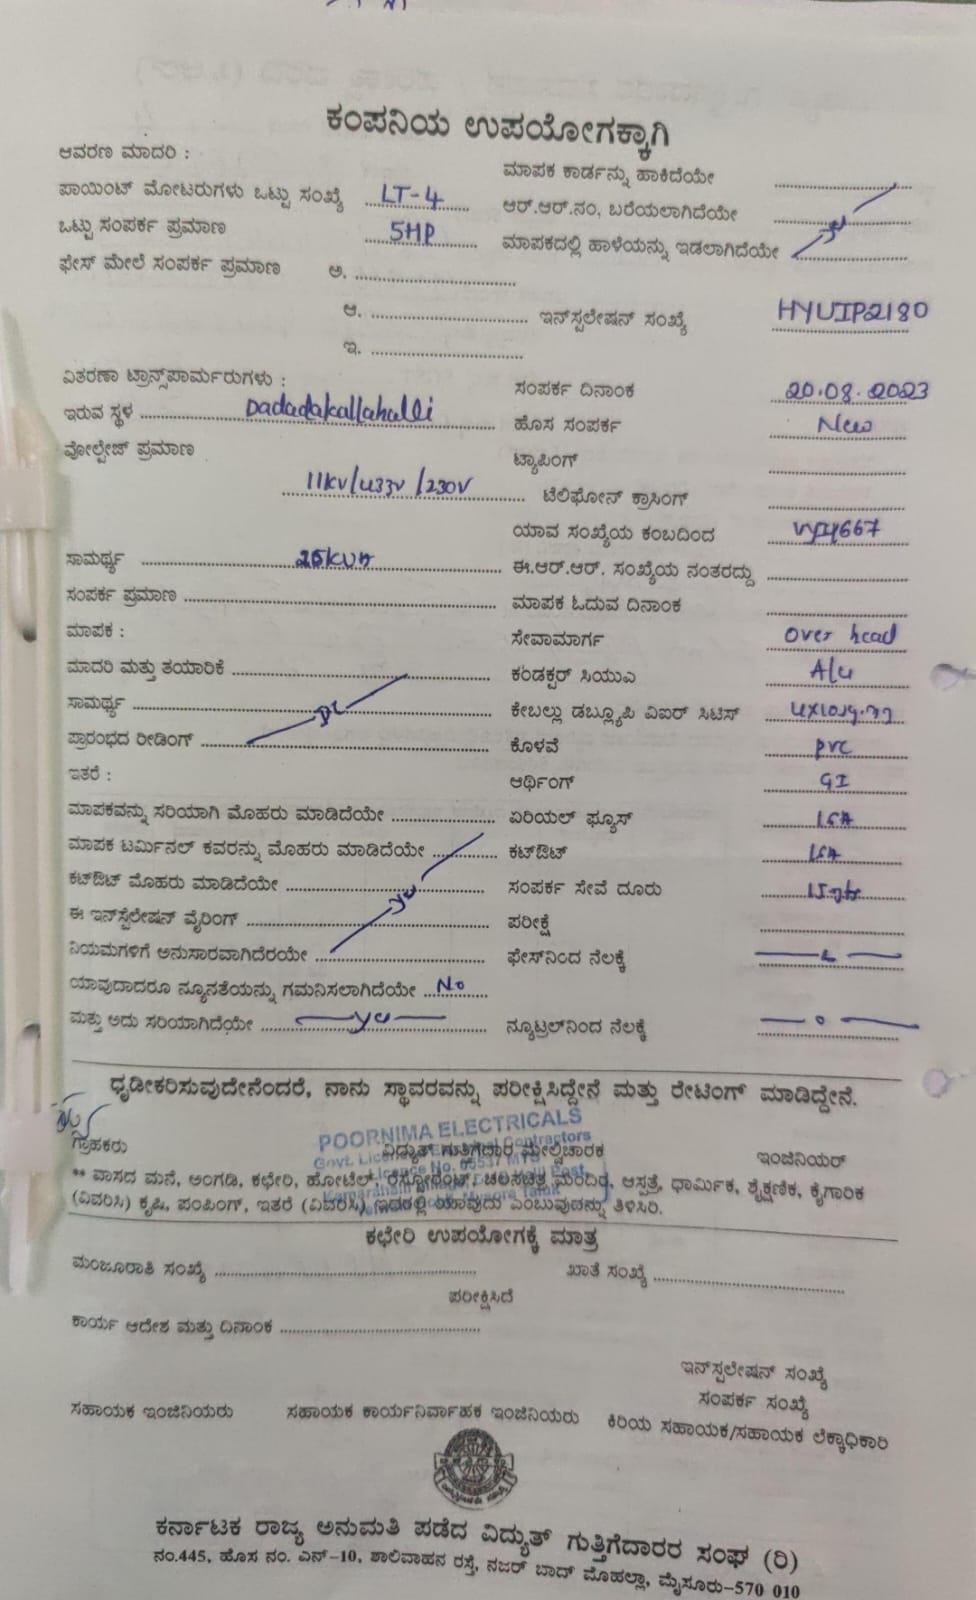 ಕಂಪನಿಯ ಉಪಯೋಗಕ್ಕಾಗಿ
ಆವರಣ ಮಾದರಿ :
ಮಾಪಕ ಕಾರ್ಡನ್ನು ಹಾಕಿದೆಯೇ
ಪಾಯಿಂಟ್ ಮೋಟರುಗಳು ಒಟ್ಟು ಸಂಖ್ಯೆ LT-4 ಆರ್.ಆರ್.ನಂ, ಬರೆಯಲಾಗಿದೆಯೇ
ಒಟ್ಟು ಸಂಪರ್ಕ ಪ್ರಮಾಣ 5HP ಮಾಪಕದಲ್ಲಿ ಹಾಳೆಯನ್ನು ಇಡಲಾಗಿದೆಯೇ
ಫೇಸ್ ಮೇಲೆ ಸಂಪರ್ಕ ಪ್ರಮಾಣ ಅ.
ಆ. ಇನ್‌ಸ್ಪಲೇಷನ್ ಸಂಖ್ಯೆ HYUIP2180
ಇ.
ವಿತರಣಾ ಟ್ರಾನ್ಸ್‌ಪಾರ್ಮರುಗಳು : ಸಂಪರ್ಕ ದಿನಾಂಕ 20.08.2023
ಇರುವ ಸ್ಥಳ Dadadakallahalli ಹೊಸ ಸಂಪರ್ಕ New
ವೋಲ್ಟೇಜ್ ಪ್ರಮಾಣ ಟ್ಯಾಪಿಂಗ್
11kv/433v/230V ಟೆಲಿಫೋನ್ ಕ್ರಾಸಿಂಗ್
ಯಾವ ಸಂಖ್ಯೆಯ ಕಂಬದಿಂದ
ಸಾಮರ್ಥ್ಯ ಈ.ಆರ್.ಆರ್. ಸಂಖ್ಯೆಯ ನಂತರದ್ದು
ಸಂಪರ್ಕ ಪ್ರಮಾಣ ಮಾಪಕ ಓದುವ ದಿನಾಂಕ
ಮಾಪಕ : ಸೇವಾಮಾರ್ಗ Over head
ಮಾದರಿ ಮತ್ತು ತಯಾರಿಕೆ ಕಂಡಕ್ಟರ್ ಸಿಯುಎ Alu
ಸಾಮರ್ಥ್ಯ ಕೇಬಲ್ಲು ಡಬ್ಲ್ಯೂಪಿ ವಿಐರ್ ಸಿಟಿಸ್
ಪ್ರಾರಂಭದ ರೀಡಿಂಗ್ ಕೊಳವೆ pvc
ಇತರೆ : ಆರ್ಥಿಂಗ್ GI
ಮಾಪಕವನ್ನು ಸರಿಯಾಗಿ ಮೊಹರು ಮಾಡಿದೆಯೇ ಏರಿಯಲ್ ಫ್ಯೂಸ್ 15A
ಮಾಪಕ ಟರ್ಮಿನಲ್ ಕವರನ್ನು ಮೊಹರು ಮಾಡಿದೆಯೇ ಕಟ್‌ಔಟ್ 15A
ಕಟ್‌ಔಟ್ ಮೊಹರು ಮಾಡಿದೆಯೇ ಸಂಪರ್ಕ ಸೇವೆ ದೂರು
ಈ ಇನ್‌ಸ್ಟಲೇಷನ್ ವೈರಿಂಗ್ ಪರೀಕ್ಷೆ
ನಿಯಮಗಳಿಗೆ ಅನುಸಾರವಾಗಿದೆರಯೇ ಫೇಸ್‌ನಿಂದ ನೆಲಕ್ಕೆ
ಯಾವುದಾದರೂ ನ್ಯೂನತೆಯನ್ನು ಗಮನಿಸಲಾಗಿದೆಯೇ No
ಮತ್ತು ಅದು ಸರಿಯಾಗಿದೆಯೇ ನ್ಯೂಟ್ರಲ್‌ನಿಂದ ನೆಲಕ್ಕೆ
ಧೃಡೀಕರಿಸುವುದೇನೆಂದರೆ, ನಾನು ಸ್ಥಾವರವನ್ನು ಪರೀಕ್ಷಿಸಿದ್ದೇನೆ ಮತ್ತು ರೇಟಿಂಗ್ ಮಾಡಿದ್ದೇನೆ.
POORNIMA ELECTRICALS
ಗ್ರಾಹಕರು ವಿದ್ಯುತ್ ಗುತ್ತಿಗೆದಾರ ಮೇಲ್ವಿಚಾರಕ ಇಂಜಿನಿಯರ್
** ವಾಸದ ಮನೆ, ಅಂಗಡಿ, ಕಛೇರಿ, ಹೋಟೆಲ್, ರೆಸ್ಟೋರೆಂಟ್, ಚಲನಚಿತ್ರ ಮಂದಿರ, ಆಸ್ಪತ್ರೆ, ಧಾರ್ಮಿಕ, ಶೈಕ್ಷಣಿಕ, ಕೈಗಾರಿಕ
(ವಿವರಿಸಿ) ಕೃಷಿ, ಪಂಪಿಂಗ್, ಇತರೆ (ವಿವರಿಸಿ) ಇದರಲ್ಲಿ ಯಾವುದು ಎಂಬುವುದನ್ನು ತಿಳಿಸಿರಿ.
ಕಛೇರಿ ಉಪಯೋಗಕ್ಕೆ ಮಾತ್ರ
ಮಂಜೂರಾತಿ ಸಂಖ್ಯೆ ಖಾತೆ ಸಂಖ್ಯೆ
ಪರೀಕ್ಷಿಸಿದೆ
ಕಾರ್ಯ ಆದೇಶ ಮತ್ತು ದಿನಾಂಕ
ಇನ್‌ಸ್ಪಲೇಷನ್ ಸಂಖ್ಯೆ
ಸಂಪರ್ಕ ಸಂಖ್ಯೆ
ಸಹಾಯಕ ಇಂಜಿನಿಯರು ಸಹಾಯಕ ಕಾರ್ಯನಿರ್ವಾಹಕ ಇಂಜಿನಿಯರು ಕಿರಿಯ ಸಹಾಯಕ/ಸಹಾಯಕ ಲೆಕ್ಕಾಧಿಕಾರಿ
ಕರ್ನಾಟಕ ರಾಜ್ಯ ಅನುಮತಿ ಪಡೆದ ವಿದ್ಯುತ್ ಗುತ್ತಿಗೆದಾರರ ಸಂಘ (ರಿ)
ನಂ.445, ಹೊಸ ನಂ. ಎನ್-10, ಶಾಲಿವಾಹನ ರಸ್ತೆ, ನಜರ್ ಬಾದ್ ಮೊಹಲ್ಲಾ, ಮೈಸೂರು-570 010